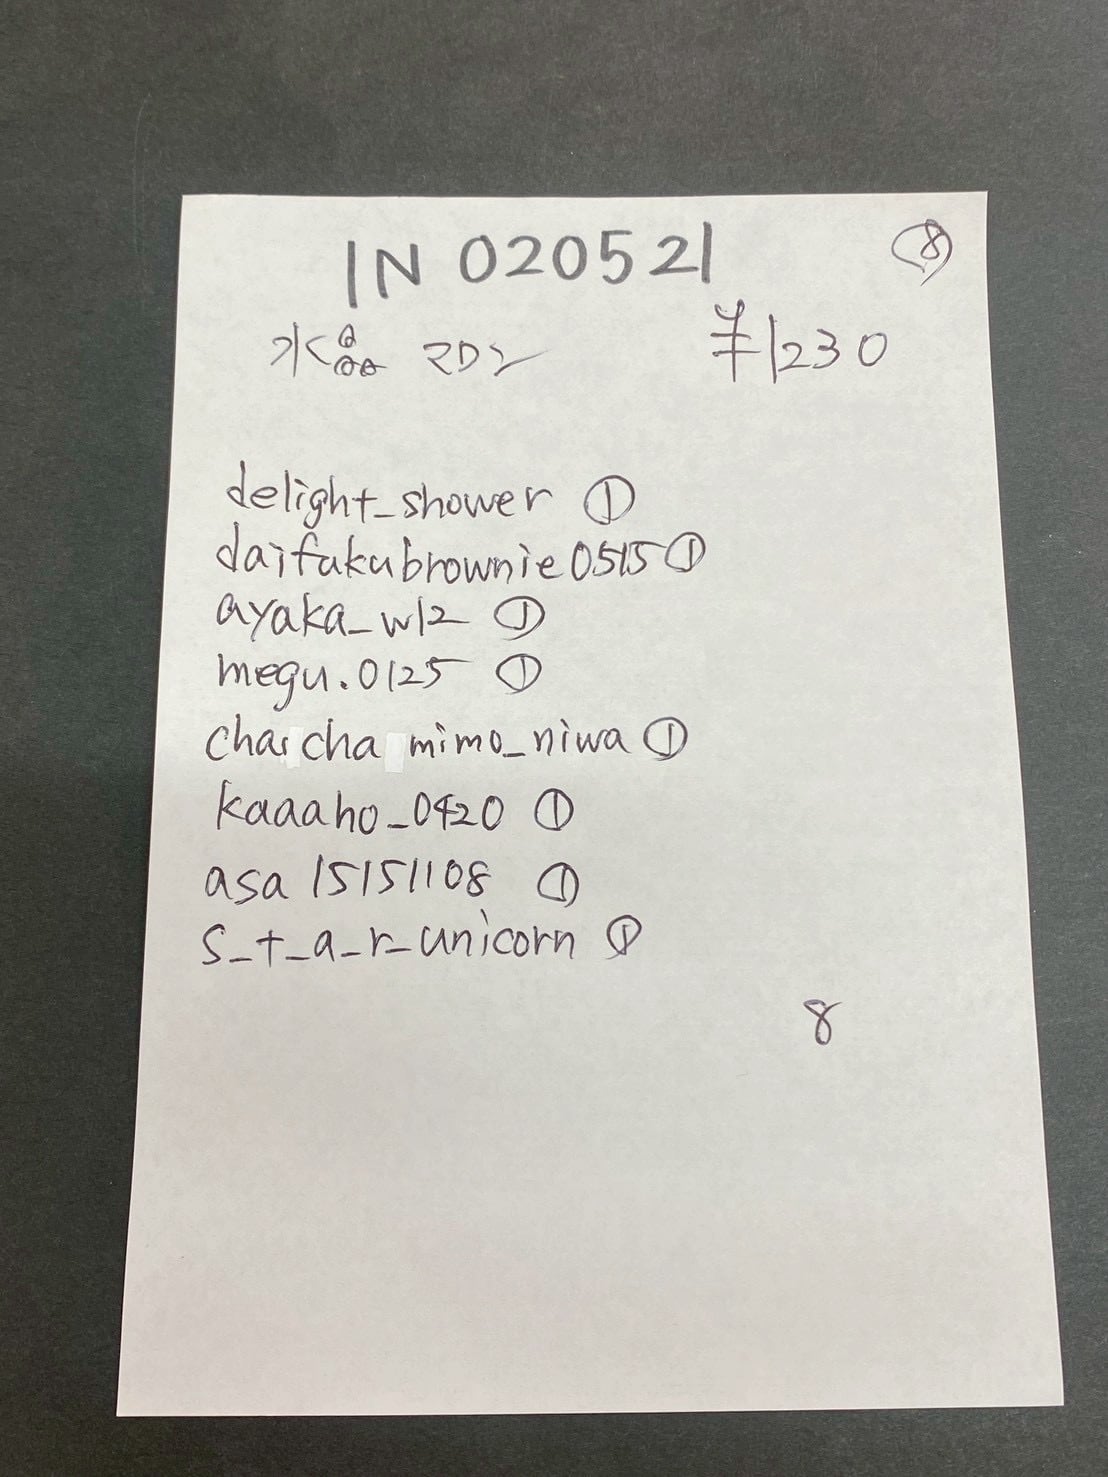 IN 020521 ⑧
水晶 マロン ¥1230
delight_shower ①
daifukubrownie0515 ①
ayaka_w12 ①
megu.0125 ①
chaicha mimo_niwa ①
kaaaho_0420 ①
asa15151108 ①
s_t_a_r_unicorn ①
8